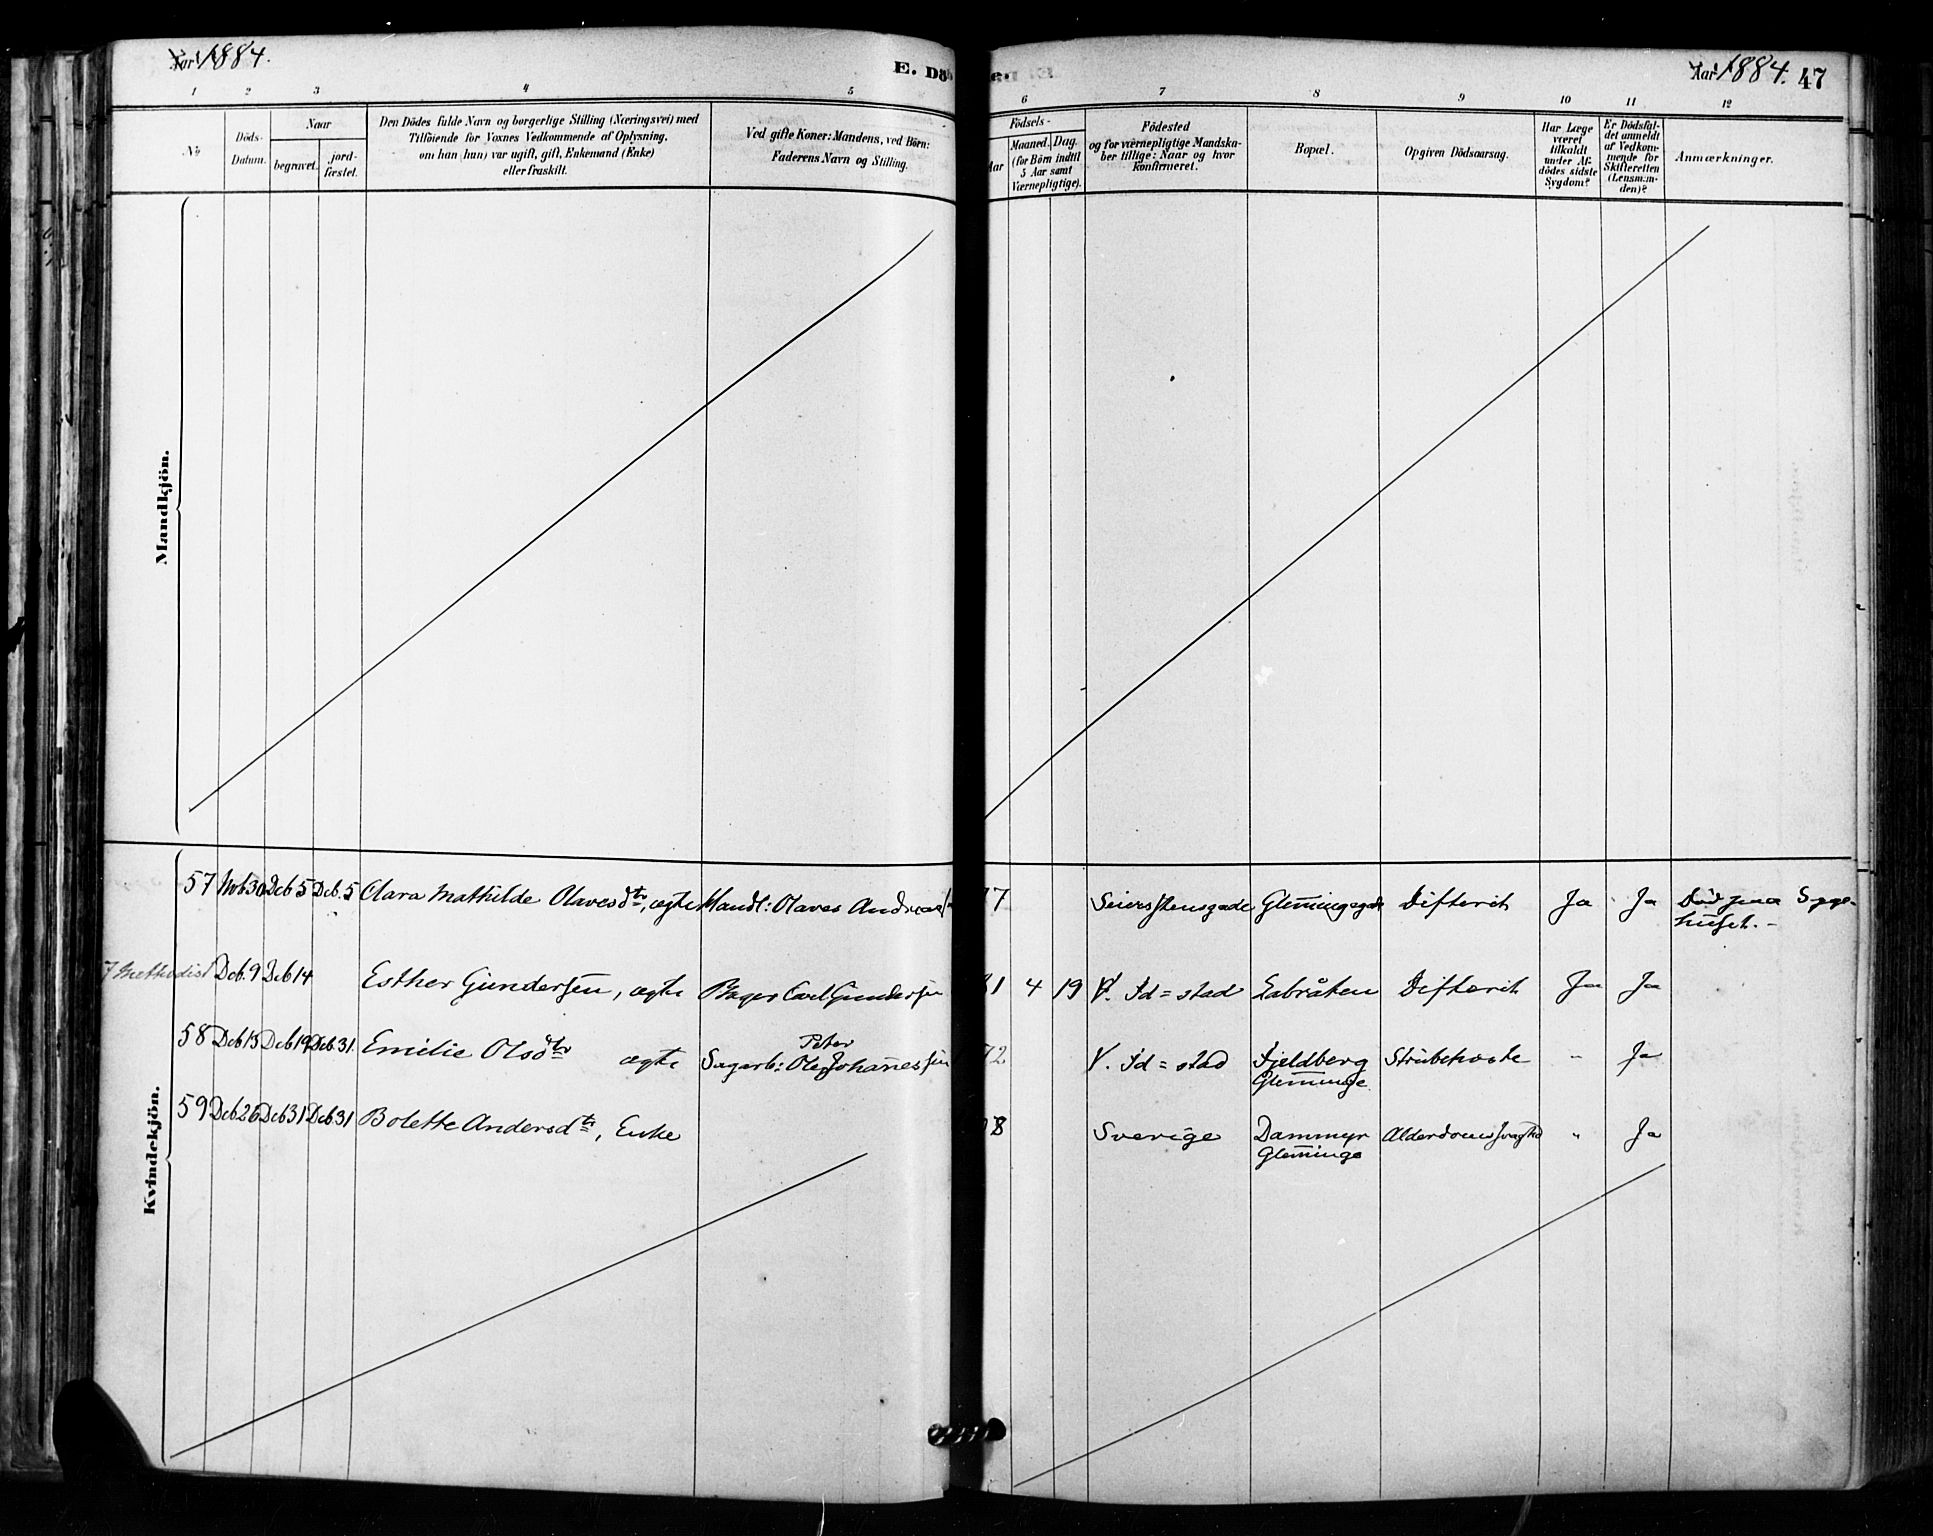 Aar 1884.
E. Dö
Aar 1884. 47
1 2 3 4 5 6 7 8 9 10 11 12
No
Döds-
Datum.
Naar
begravet.
jord-
fæstet.
Den Dödes fulde Navn og borgerlige Stilling (Næringsvei) med
Tilföiende for Voxnes Vedkommende af Oplysning,
om han (hun) var ugift, gift, Enkemand (Enke)
eller fraskilt.
Ved gifte Koner: Mandens, ved Börn:
Faderens Navn og Stilling.
Födsels-
Aar
Maaned. Dag.
(for Börn indtil
5 Aar samt
Værnepligtige).
Födested
og for værnepligtige Mandska-
ber tillige: Naar og hvor
konfirmeret.
Bopæl.
Opgiven Dödsaarsag.
Har Læge
været
tilkaldt
under Af-
dödes sidste
Sygdom?
Er Dödsfal-
det anmeldt
af Vedkom-
mende for
Skifteretten
(Lensman-
den)?
Anmærkninger.
Mandkjön.
Kvindekjön.
57 Nvb 30 Dcb 5 Dcb. 5 Clara Mathilde Olavesdtr, ægte Handl: Olaves 77 Seiersstensgade Difterit Ja Ja Död paa Syge-
huset. -
7 Methodist Dcb. 9 Dcb 14 Esther Gundersen, ægte Bager Carl Gundersen 81 4 19 V. Id=stad Labråten Difterit Ja Ja
58 Dcb 13 Dcb 19 Dcb. 31. Emilie Olsdtr ægte Sagarb: Ole Peter Johannessen 72 V. Id=stad Fjeldberg
Glemminge Strubehoste " Ja
59 Dcb 26 Dcb 31 Dcb 31 Bolette Andersdtr, Enke 8 Sverige Dammyr
Glemminge Alderdomssvaghd " Ja